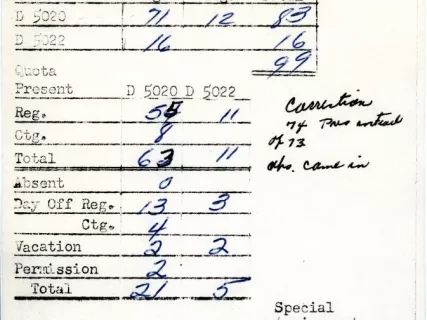 D 5020 71 12 83
D 5022 16 16
99
Quota
Present D 5020 D 5022
Reg. 55 11
Ctg. 8
Total 63 11
Absent 0
Day Off Reg. 13 3
Ctg. 4
Vacation 2 2
Permission 2
Total 21 5
Correction
74 Pres instead
of 73
abs. came in
Special